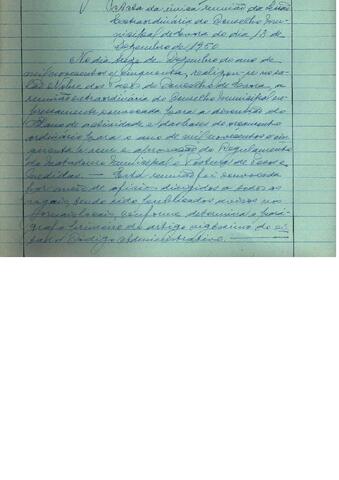 Acta da única reunião da Sessão
Extraordinária do Conselho Mu-
nicipal de Lousada do dia 13 de
Dezembro de 1950
No dia treze de Dezembro do ano de
mil novecentos e cinquenta, realizou-se no sa-
lão nobre dos Paços do Concelho de
reunião extraordinária do Conselho Municipal ex-
pressamente convocada para a discussão do
Plano de actividade e das bases do orçamento
ordinário para o ano de mil novecentos e cin-
quenta e um e aprovação do Regulamento
do Matadouro Municipal e Postura de Pesos e
Medidas. — Esta reunião foi convocada
por meio de ofícios dirigidos a todos os
vogais, tendo sido publicados avisos nos
jornais locais, conforme determina o pará-
grafo primeiro do artigo vigésimo do ci-
tado Código Administrativo. —